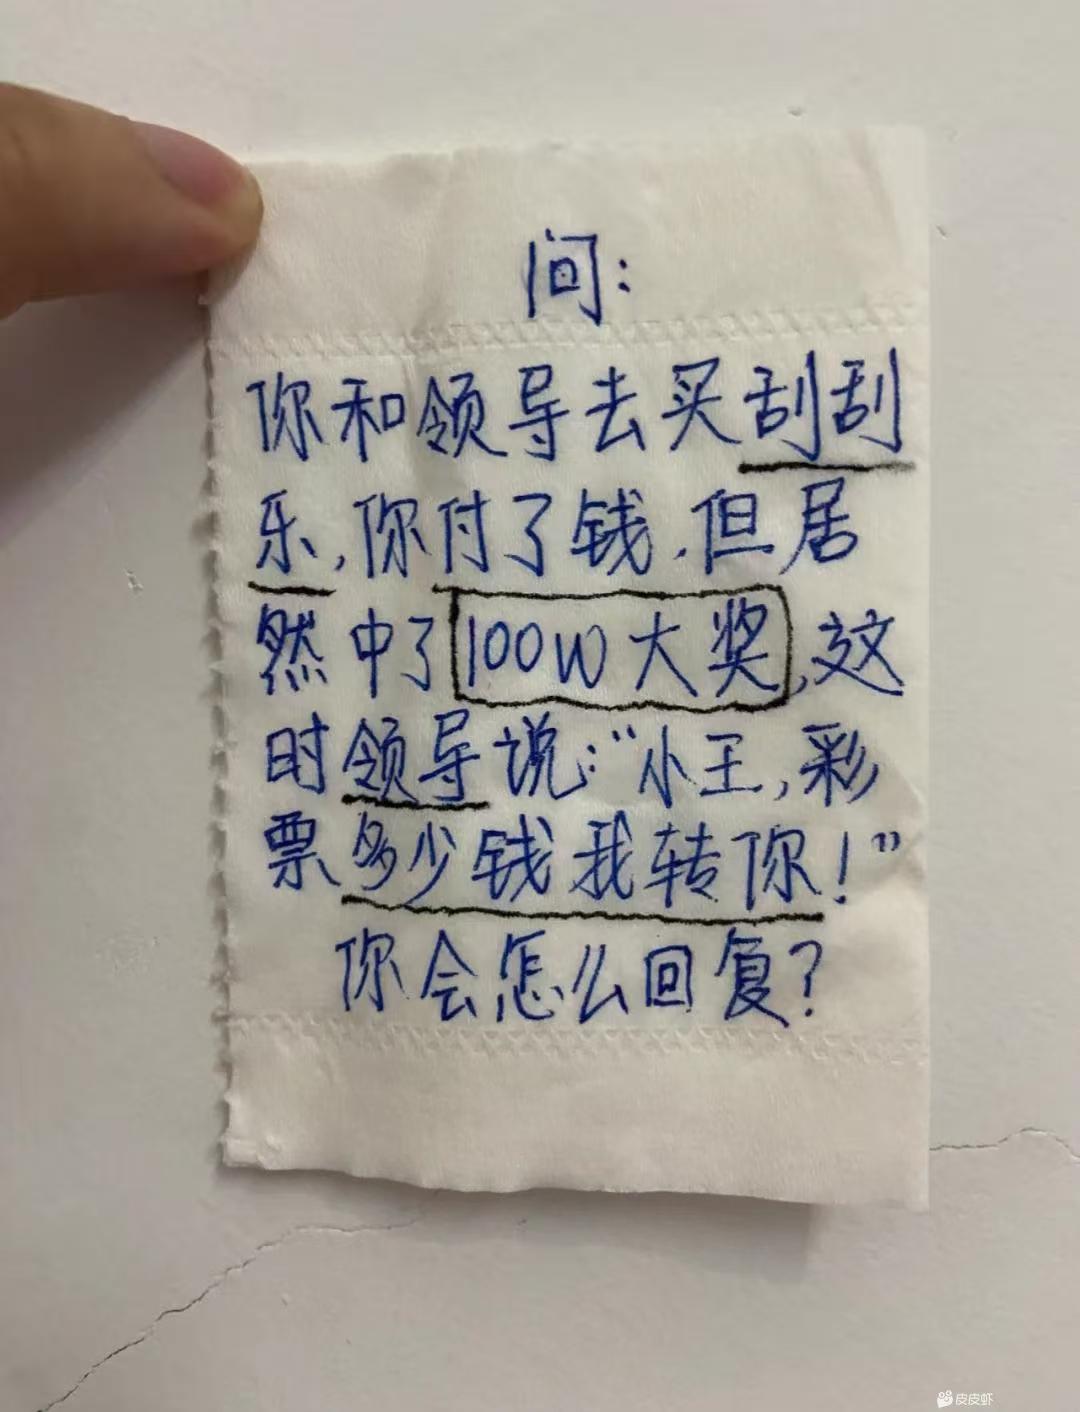 问:
你和领导去买刮刮
乐,你付了钱,但居
然中了100W大奖,这
时领导说:“小王,彩
票多少钱我转你!”
你会怎么回复?
皮皮虾